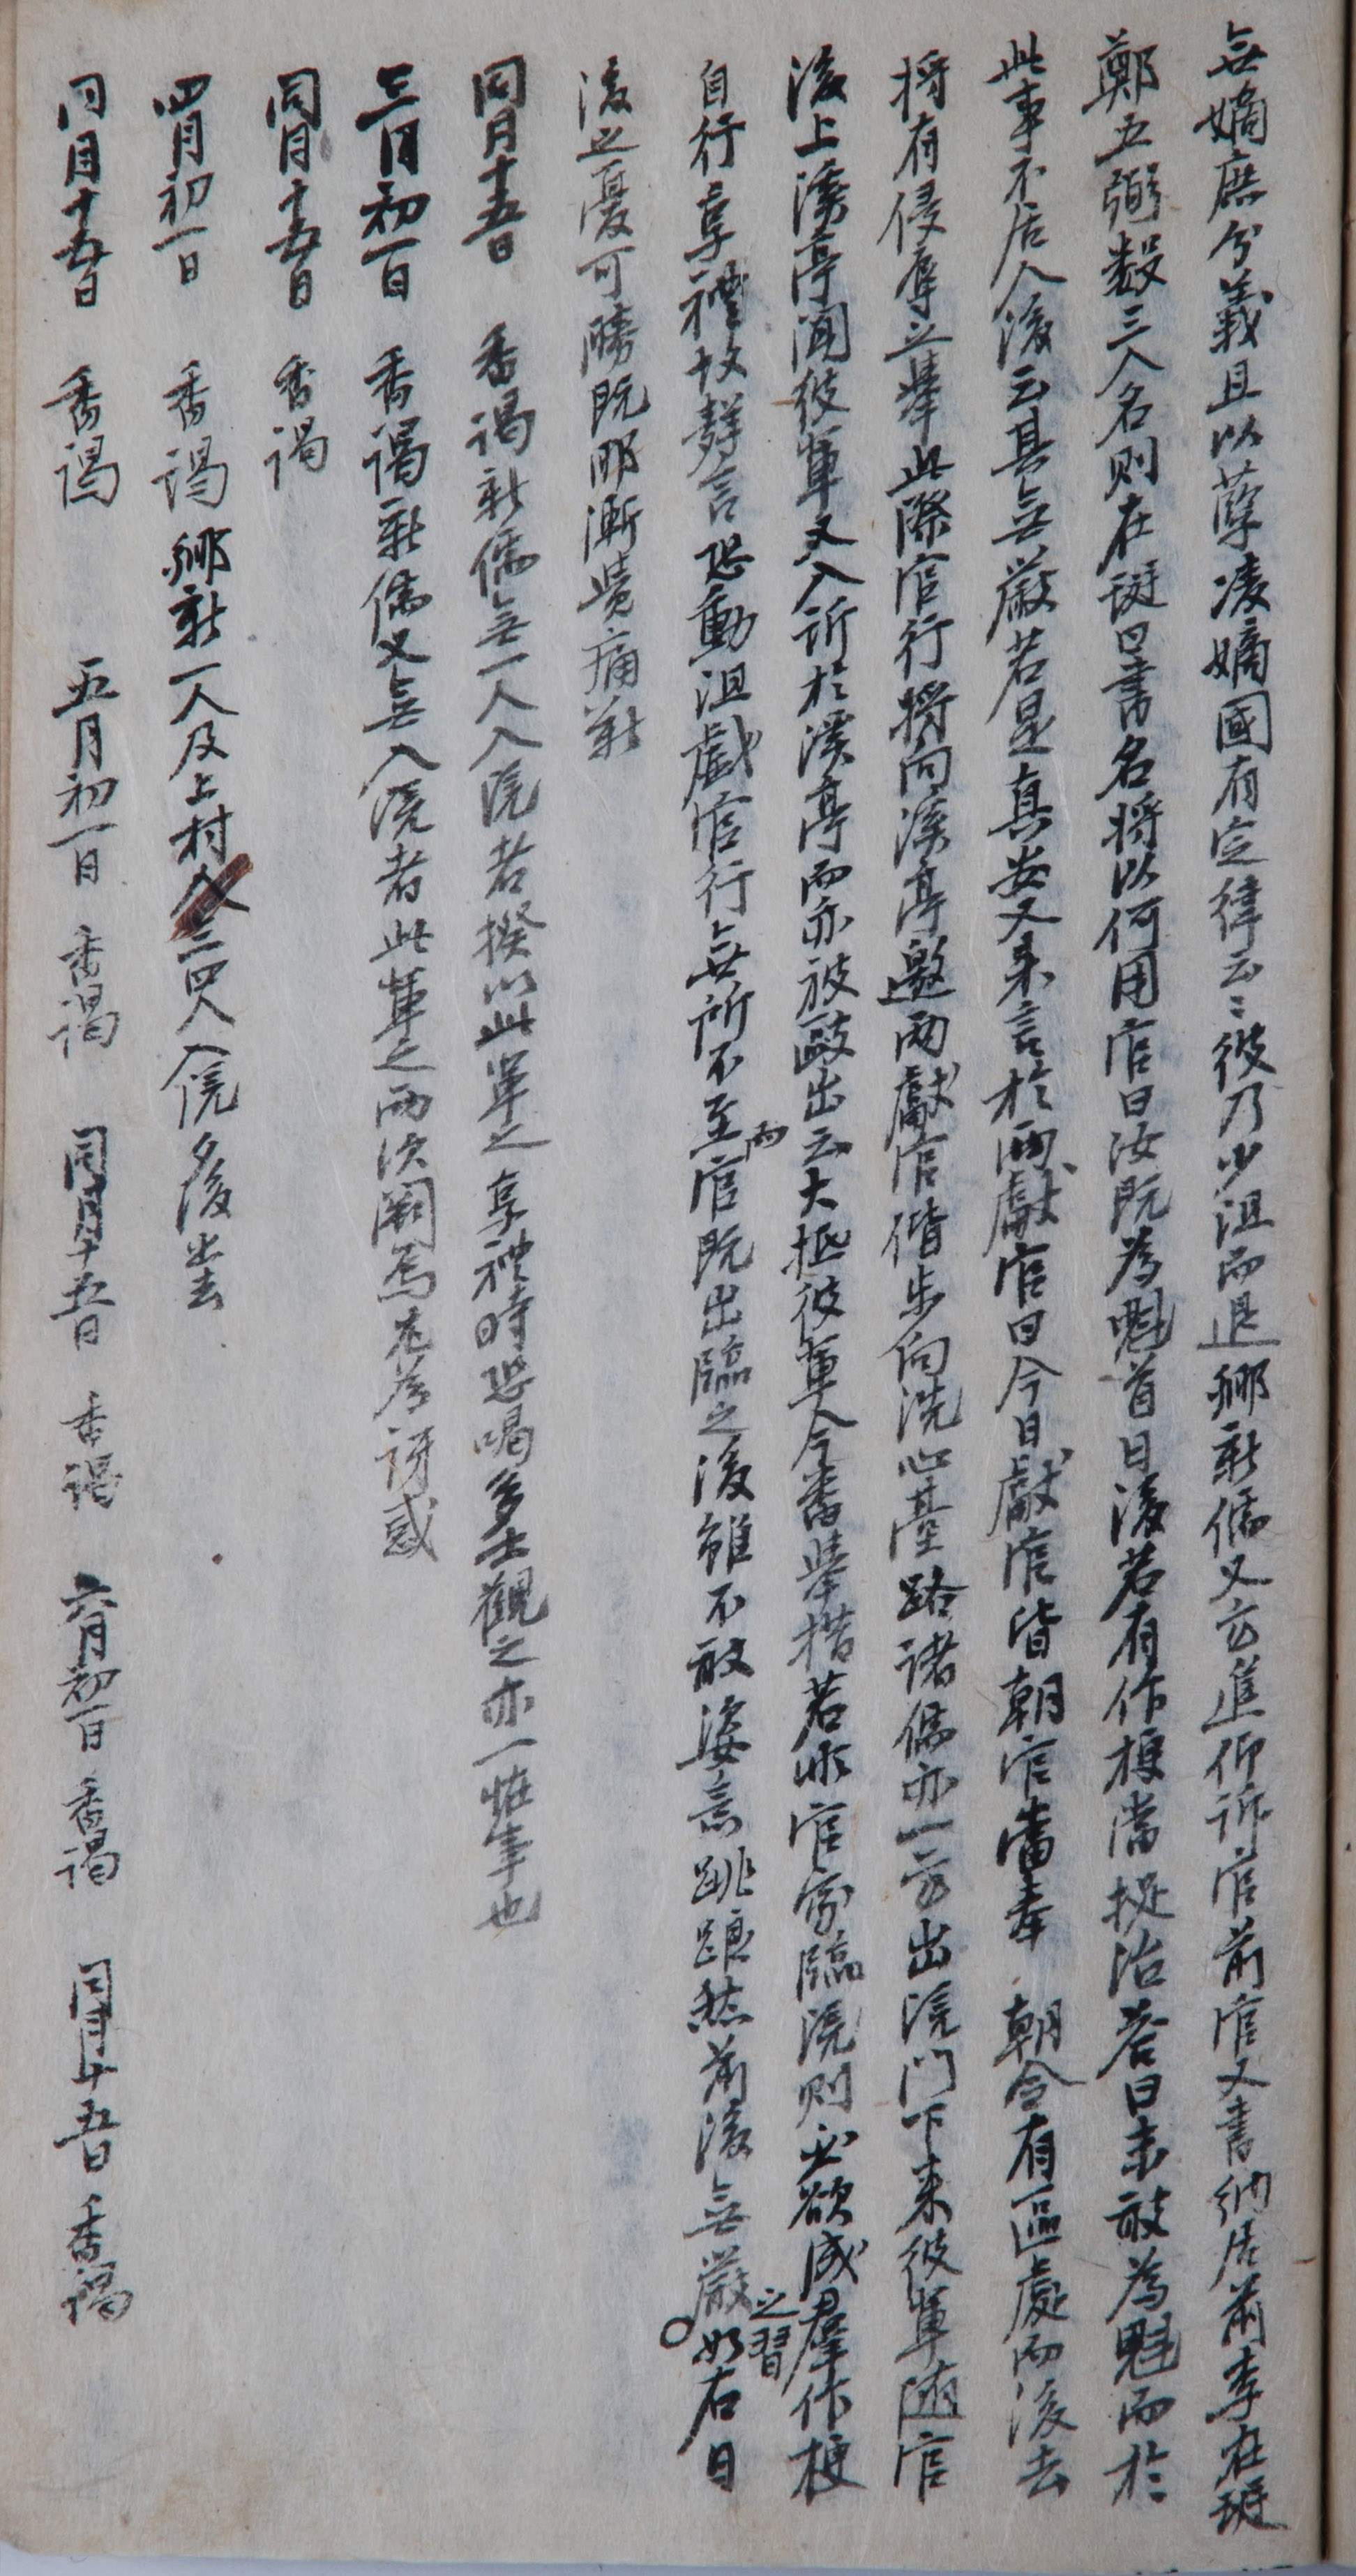 無嫡庶分義且以孽凌嫡國有定律云〻彼乃少沮而退鄕新儒又方進仰訴官前官又書納居首李在珽
鄭五弼數三人名則在珽曰書名將以何用官曰汝旣爲魁首日後若有作梗當捉治答曰未敢爲魁而於
此事不居人後云其無嚴若是眞安又來言於兩獻官曰今日獻官皆朝官當奉 朝令有區處而後去
將有侵辱之擧此際官行將向溪亭邀兩獻官偕步向洗心臺路諸儒亦一齊出院門下來彼輩隨官
後上溪亭間彼輩又入訴於溪亭而亦被敺出云大抵彼輩今番擧措若非官家臨院則必欲成群作梗
自行享禮故辭言恐動沮戲官行無所不至而官旣出臨之後雖不敢姿意跳踉然前後無嚴之習如右日
後之憂可勝旣耶漸覺痛歎
同月十五日 香謁新儒無一人入院者揆以此輩之享禮時恐喝多士觀之亦一怪事也
三月初一日 香謁新儒又無入院者此輩之兩次闕焉尤爲訝惑
同月十五日 香謁
四月初一日 香謁 鄕新一人及上村三四人入院夕後出去
同月十五日 香謁 五月初一日 香謁 同月十五日 香謁 六月初一日 香謁 同月十五日 香謁